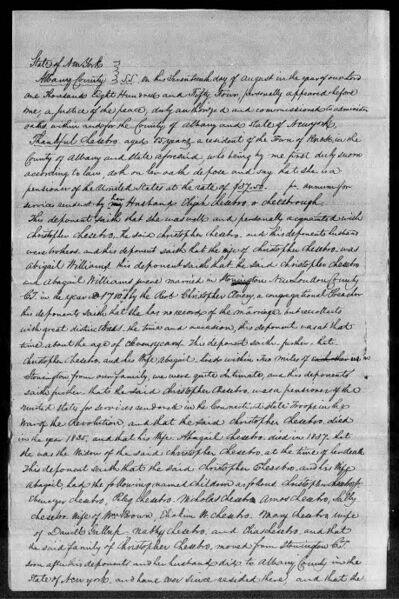 State of New York }
Albany County } SS. on this Seventeenth day of August in the year of our Lord
one Thousand Eight Hundred and Fifty Four, personally appeared before
me, a justice of the peace, duly authorized and commissioned to administer
oaths within and for the County of Albany and State of New York,
Thankful Chesebro, aged 75 years, a resident of the Town of in the
County of Albany and State aforesaid, who being by me first duly sworn
according to law, doth on her oath depose and say that she is a
pensioner of the United States at the rate of $ per annum for
services rendered by her Husband Elijah Chesebro or Cheesbrough.
This deponent saith that she was well and personally acquainted with
Christopher Chesebro, the said Christopher Chesebro, and this deponents husband
were brothers, and this deponent saith that the wife of Christopher Chesebro was
Abigail Williams, this deponent saith that the said Christopher Chesebro
and Abigail Williams were married in Stonington New London County
CT. in the year by the Rev. Christopher a congregational Preacher
this deponents saith that she has no record of the marriage but recollects
with great distinctness, the time and occasion, this deponent was at that
time about the age of years. This deponent saith further, that
Christopher Chesebro, and his Wife Abigail, lived within Two Miles of in
Stonington from our family, we were quite intimate, and this deponents
saith further, that the said Christopher Chesebro, was a pensioner of the
United States for Services rendered in the Connecticut State Troops in the
War of the Revolution, and that the said Christopher Chesebro, died
in the year 1835, and that his Wife Abigail Chesebro, died in 1837, that
she was the Widow of the said Christopher Chesebro, at the time of her death
This deponent saith that the said Christopher Chesebro, and his Wife
Abigail, had the following named children as follows Christopher Chesebro,
Ebenezer Chesebro, Riley Chesebro, Nicholas Chesebro, Amos Chesebro, Sally
Chesebro, wife of Wm Brown, W. Chesebro, Mary Chesebro, wife
of David Gallup, Nathy Chesebro, and Chesebro, and that
the said family of Christopher Chesebro, moved from Stonington CT.
soon after this deponents and her husband did to Albany County in the
State of New York, and have ever since resided there, and that the